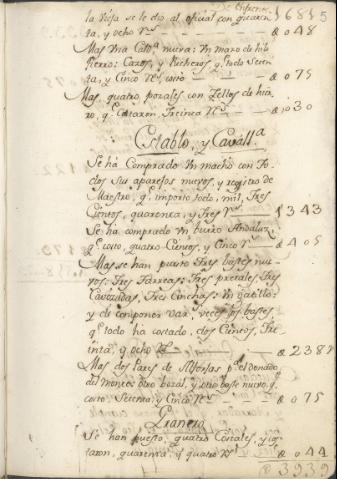 De Enfrente 16815
la Vieja se le dio al oficial con quaren
ta, y ocho Rs. — 048
Mas Vna Cam.ª nueva: Vn mazo de hilo
fierro: y Pucheros q.e todo Seten
ta, y Cinco Rs. costo — 075
Mas, quatro pozales con Zellos de hier
ro, q.e Costaron Treinta Rs. — 030
Establo, y Cavall.ª
Se ha Comprado Vn macho con to
dos sus aparejos nuevos, y registro de
Maestro, q.e importo todo, mil, tres
Cientos, quarenta, y tres Rs. 1343
Se ha comprado Vn burro Andaluz,
q.e costo, quatro Cientos, y Cinco Rs. — 405
Mas se han puesto tres bastes nue
vos: tres Farreas: tres pretales, tres
tres Cinchas: Vn gatillo:
y de componer var.s veces los bastes,
q.e todo ha costado, dos Cientos, tre
inta, y ocho Rs. — 238
Mas dos Pares de Alforjas p.a el donado
del monte: otro bozal, y otro baste nuevo, q.e
costo, Setenta, y Cinco Rs. — 075
Granero
Se han puesto, quatro Costales, y cos
taron, quarenta, y quatro Rs. — 044
3939